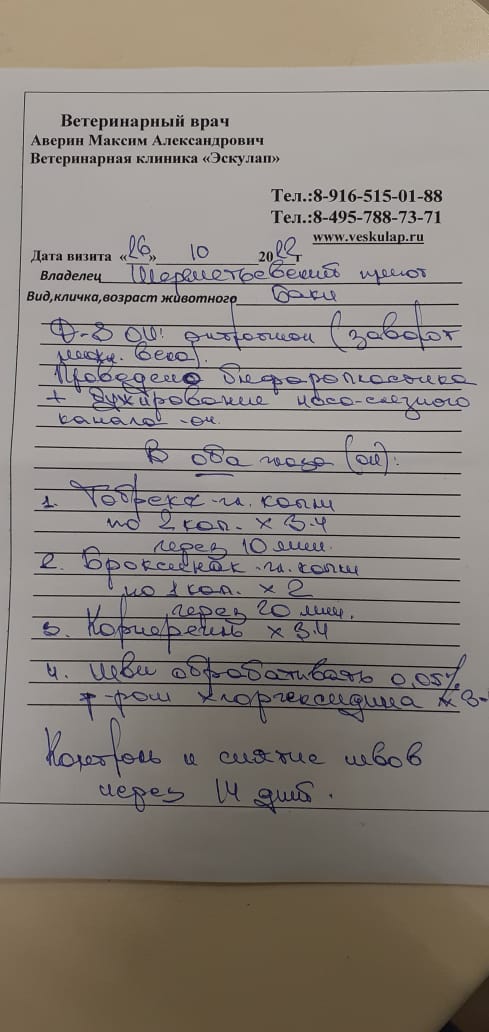 Ветеринарный врач
Аверин Максим Александрович
Ветеринарная клиника «Эскулап»
Тел.:8-916-515-01-88
Тел.:8-495-788-73-71
www.veskulap.ru
Дата визита «26» 10 2022г
Владелец Шереметьевский приют
Вид,кличка,возраст животного Баки
D-S OU: энтропион (заворот
нижн. века).
Проведено блефаропластика
+ бужирование носо-слезного
канала -ou.
В оба глаза (ou):
1. Тобрекс -гл. капли
по 2 кап. х 3-4
через 10 мин.
2. Броксинак -гл. капли
по 1 кап. х 2
через 20 мин.
3. Корнерегель х 3-4
4. Швы обрабатывать 0,05%
р-ром хлоргексидина х 3-
Контроль и снятие швов
через 14 дней.